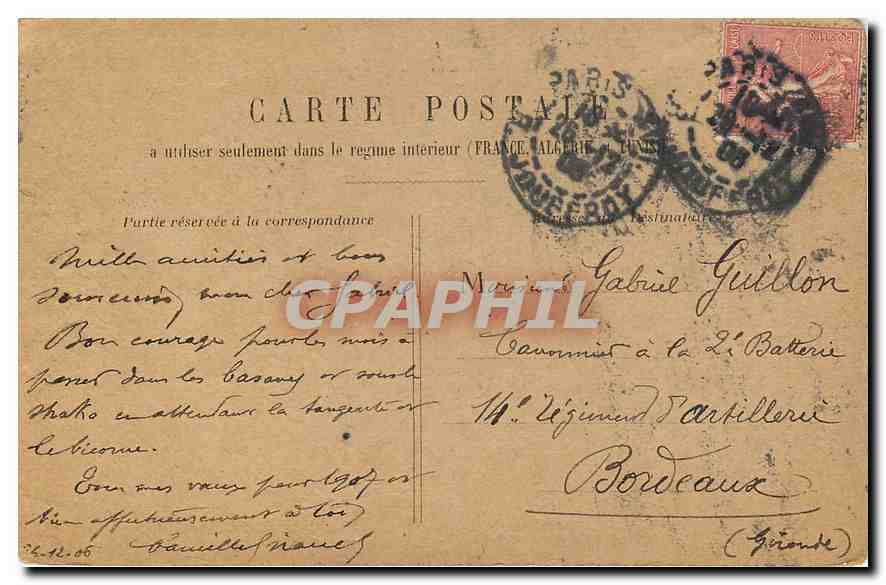 CARTE POSTALE
a utiliser seulement dans le regime intérieur (FRANCE, ALGERIE et TUNISIE)
Partie réservée à la correspondance
Adresse du Destinataire
PARIS
R. JOUFFROY
PARIS
R. JOUFFROY
POSTES
CPAPHIL
Mille amitiés et bons
souvenirs mon cher Gabriel
Bon courage pour les mois à
passer dans les casernes et sous le
shako en attendant la tangente et
le bicorne.
Tous mes vœux pour 1907 et
bien affectueusement à toi
Camille
24-12-06
Monsieur Gabriel Guillon
Canonnier à la 2e Batterie
14e Régiment d'artillerie
Bordeaux
(Gironde)